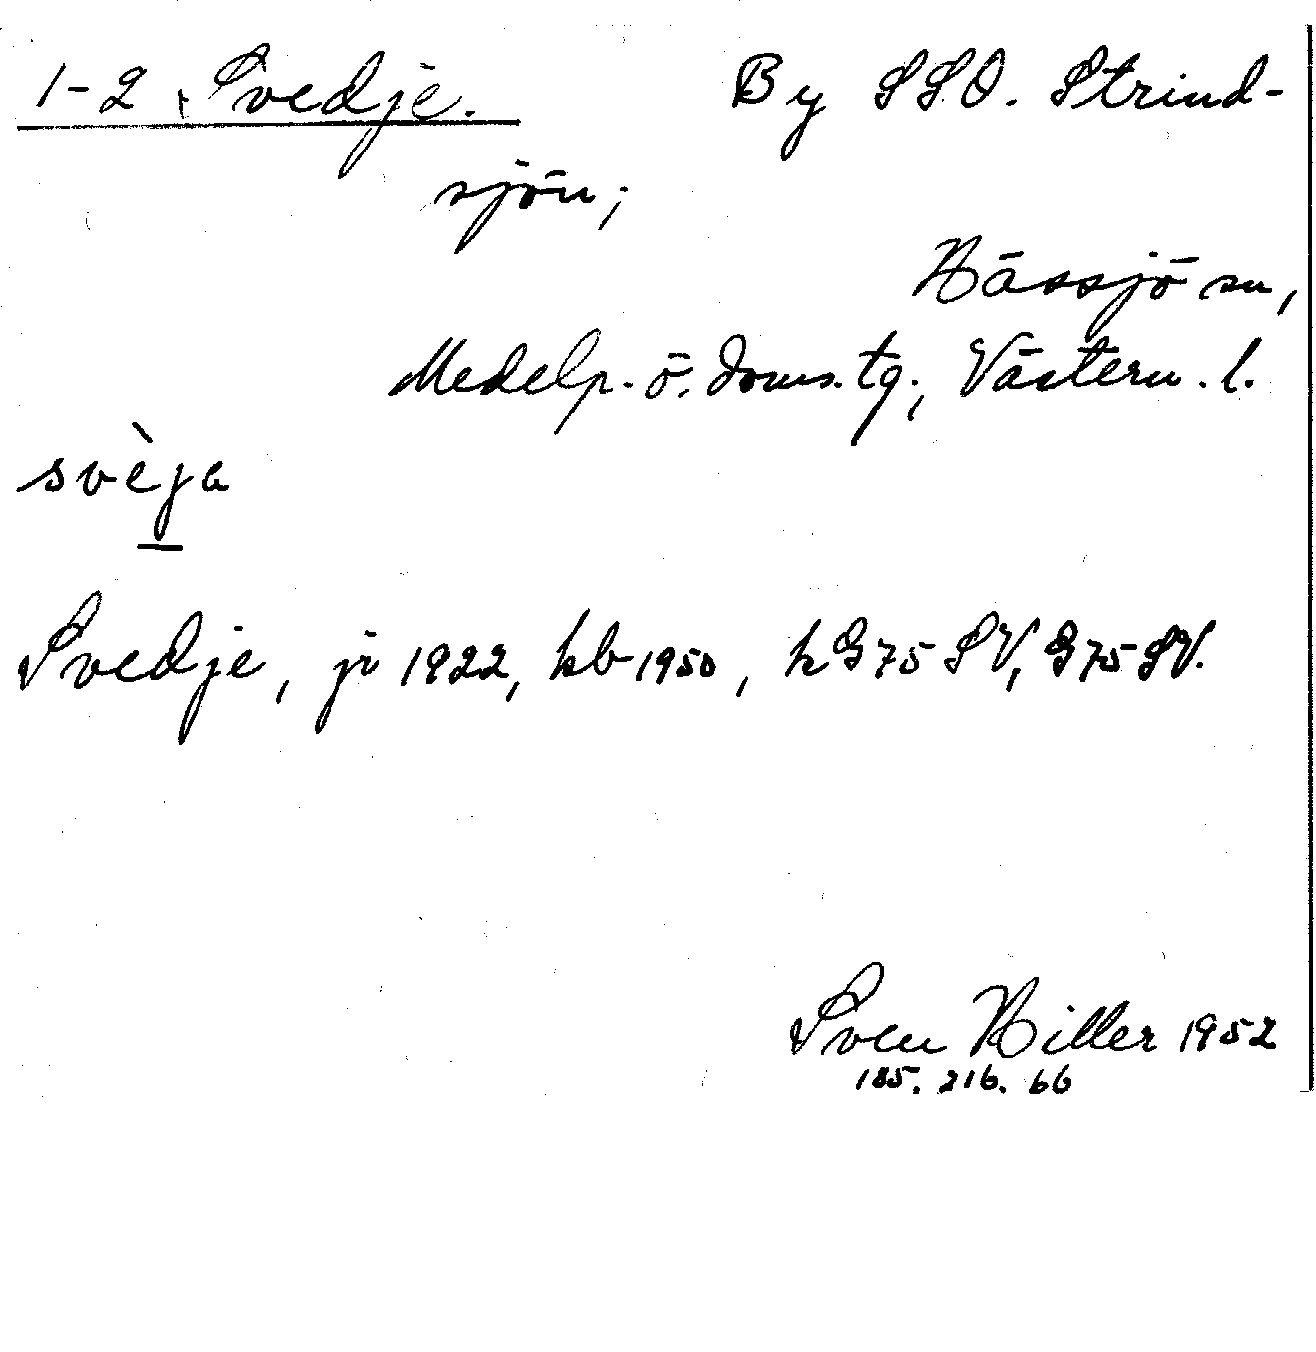 1-2 Svedje. By SSO. Strind-
sjön;
Hässjö sn,
Medelp. ö. doms. tg., Västern. l.
svèja
Svedje, jr 1922, kb 1950, hG75 SV, G75 SV.
Sven Hiller 1952
185. 216. 66